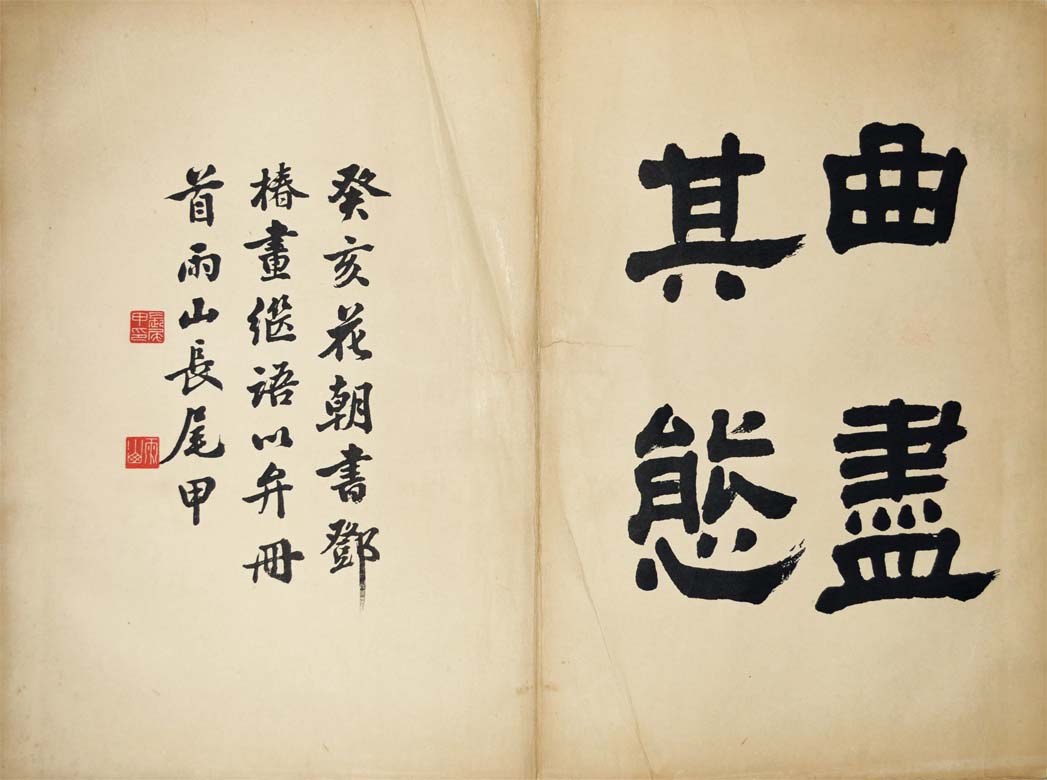 曲盡
其態
癸亥花朝書鄧
椿畫繼語以弁冊
首雨山長尾甲
雨山